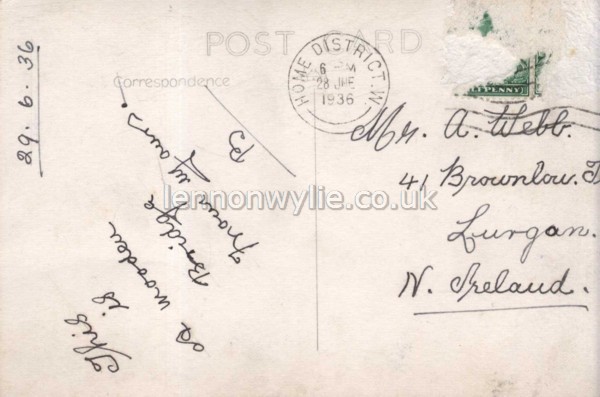 POST CARD
Correspondence
29. 6. 36
This is
a wooden
Bridge
B
HOME DISTRICT. W
6 PM
28 JNE
1936
PENNY
Mr. A. Webb.
41 Brownlow.
Lurgan.
N. Ireland.
lennonwylie.co.uk